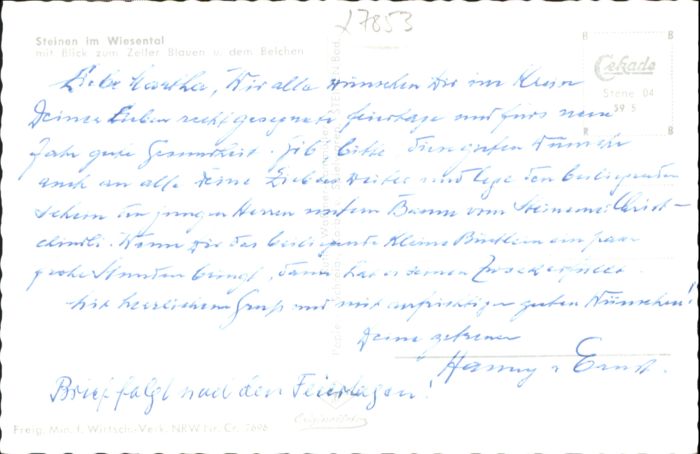 27853
Steinen im Wiesental
mit Blick zum Zeller Blauen u. dem Belchen
Cekade
Stene 04
59 5
Liebe Martha, Wir alle wünschen Dir im Kreise
Deiner Lieben recht gesegnete Feiertage und fürs neue
Jahr gute Gesundheit. Gib, bitte, diese guten Wünsche
auch an alle Deine Lieben weiter und lege den beiliegenden
Schein den jungen Herren unterm Baum vom Steinemer Christ-
chindli. Wenn Dir das beiliegende kleine Büchlein ein paar
frohe Stunden bringt, dann hat es seinen Zweck erfüllt.
Mit herzlichem Gruß und mit aufrichtigen guten Wünschen!
Deine getreuen
Hanny u Ernst.
Brief folgt nach den Feiertagen!
Freig. Min. f. Wirtsch. Verk. NRW Nr. Cr. 7696